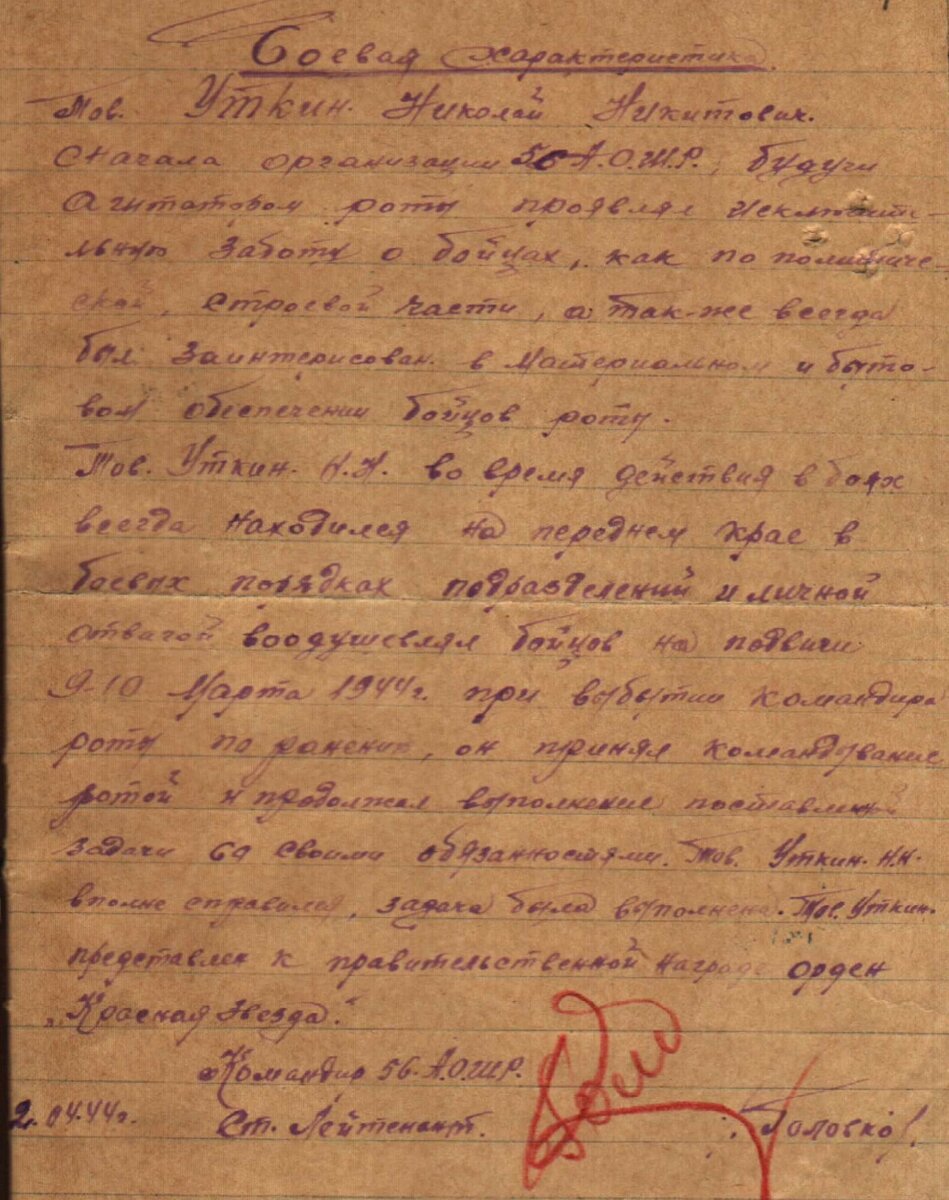 Боевая характеристика.
Тов. Уткин. Николай Никитович.
сначала организации 56 А.О.Ш.Р., будучи
агитатором роты проявлял исключите-
льную заботу о бойцах, как по политиче-
ской, строевой части, а так-же всегда
был заинтерисован в материальном и быто-
вом обеспечении бойцов роты.
Тов. Уткин. Н.Н. во время действия в боях
всегда находился на переднем крае в
боевых порядках подразделений и личной
отвагой воодушевлял бойцов на подвиги
9-10 Марта 1944г. при выбытии командира
роты по ранению, он принял командывание
ротой и продолжал выполнение поставленой
задачи со своими обязанностями. Тов. Уткин. Н.Н.
вполне справился, задача была выполнена. Тов. Уткин.
представлен к правительственной награде орден
„Красная звезда".
Командир 56. А.О.Ш.Р.
2.04.44г. Ст. Лейтенант. Головко